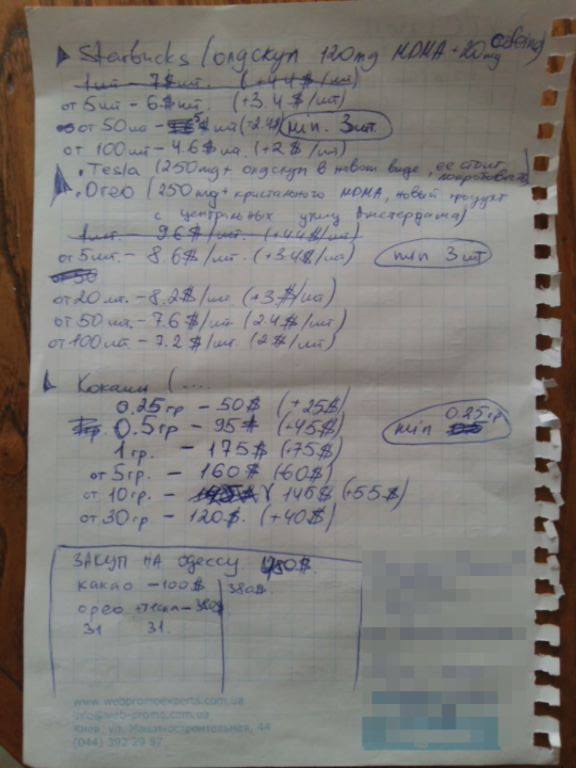 Starbucks (олдскул 120mg MDMA + 20mg cofeine)
1 шт - 7$/шт. (+4.4$/шт)
от 5шт - 6$/шт. (+3.4$/шт)
от 50шт - 5$/шт (+2.4$) min. 3шт.
от 100шт - 4.6$/шт. (+2$/шт)
• Tesla (250mg + олдскул в новом виде, ее стоит попробовать)
• Oreo (250mg + кристального MDMA, новый продукт
с центральных улиц Амстердама)
1шт. - 9.6$/шт. (+4.4$/шт)
от 5шт. - 8.6$/шт. (+3.4$/шт) min 3шт
от 50
от 20шт. - 8.2$/шт (+3$/шт)
от 50шт. - 7.6$/шт. (2.4$/шт)
от 100шт. - 7.2$/шт. (2$/шт)
Кокаин (....
0.25гр - 50$ (+25$)
0.5гр - 95$ (+45$) min 0.25гр
1гр. - 175$ (+75$)
от 5гр. - 160$ (60$)
от 10гр. - 145$ (+55$)
от 30гр - 120$. (+40$)
ЗАКУП НА Одессу $.
какао - 100$ 380$.
орео + тесла - 380$
31 31
www.webpromoexperts.com.ua
info@web-promo.com.ua
Киев, ул. Машиностроительная, 44
(044) 392 29 97